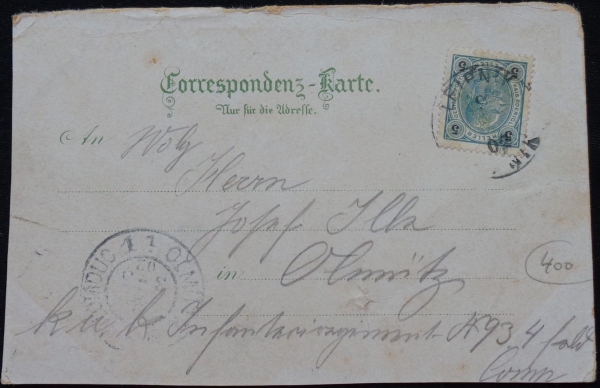 Correspondenz-Karte.
Nur für die Adresse.
An Wolg
Herrn
Josef Illk
in Olmütz
k u k Infanterieregiment N 93 4 Feld
Comp
400
5
5
LEIPNIK
OLM
OLOMOUC 1 1